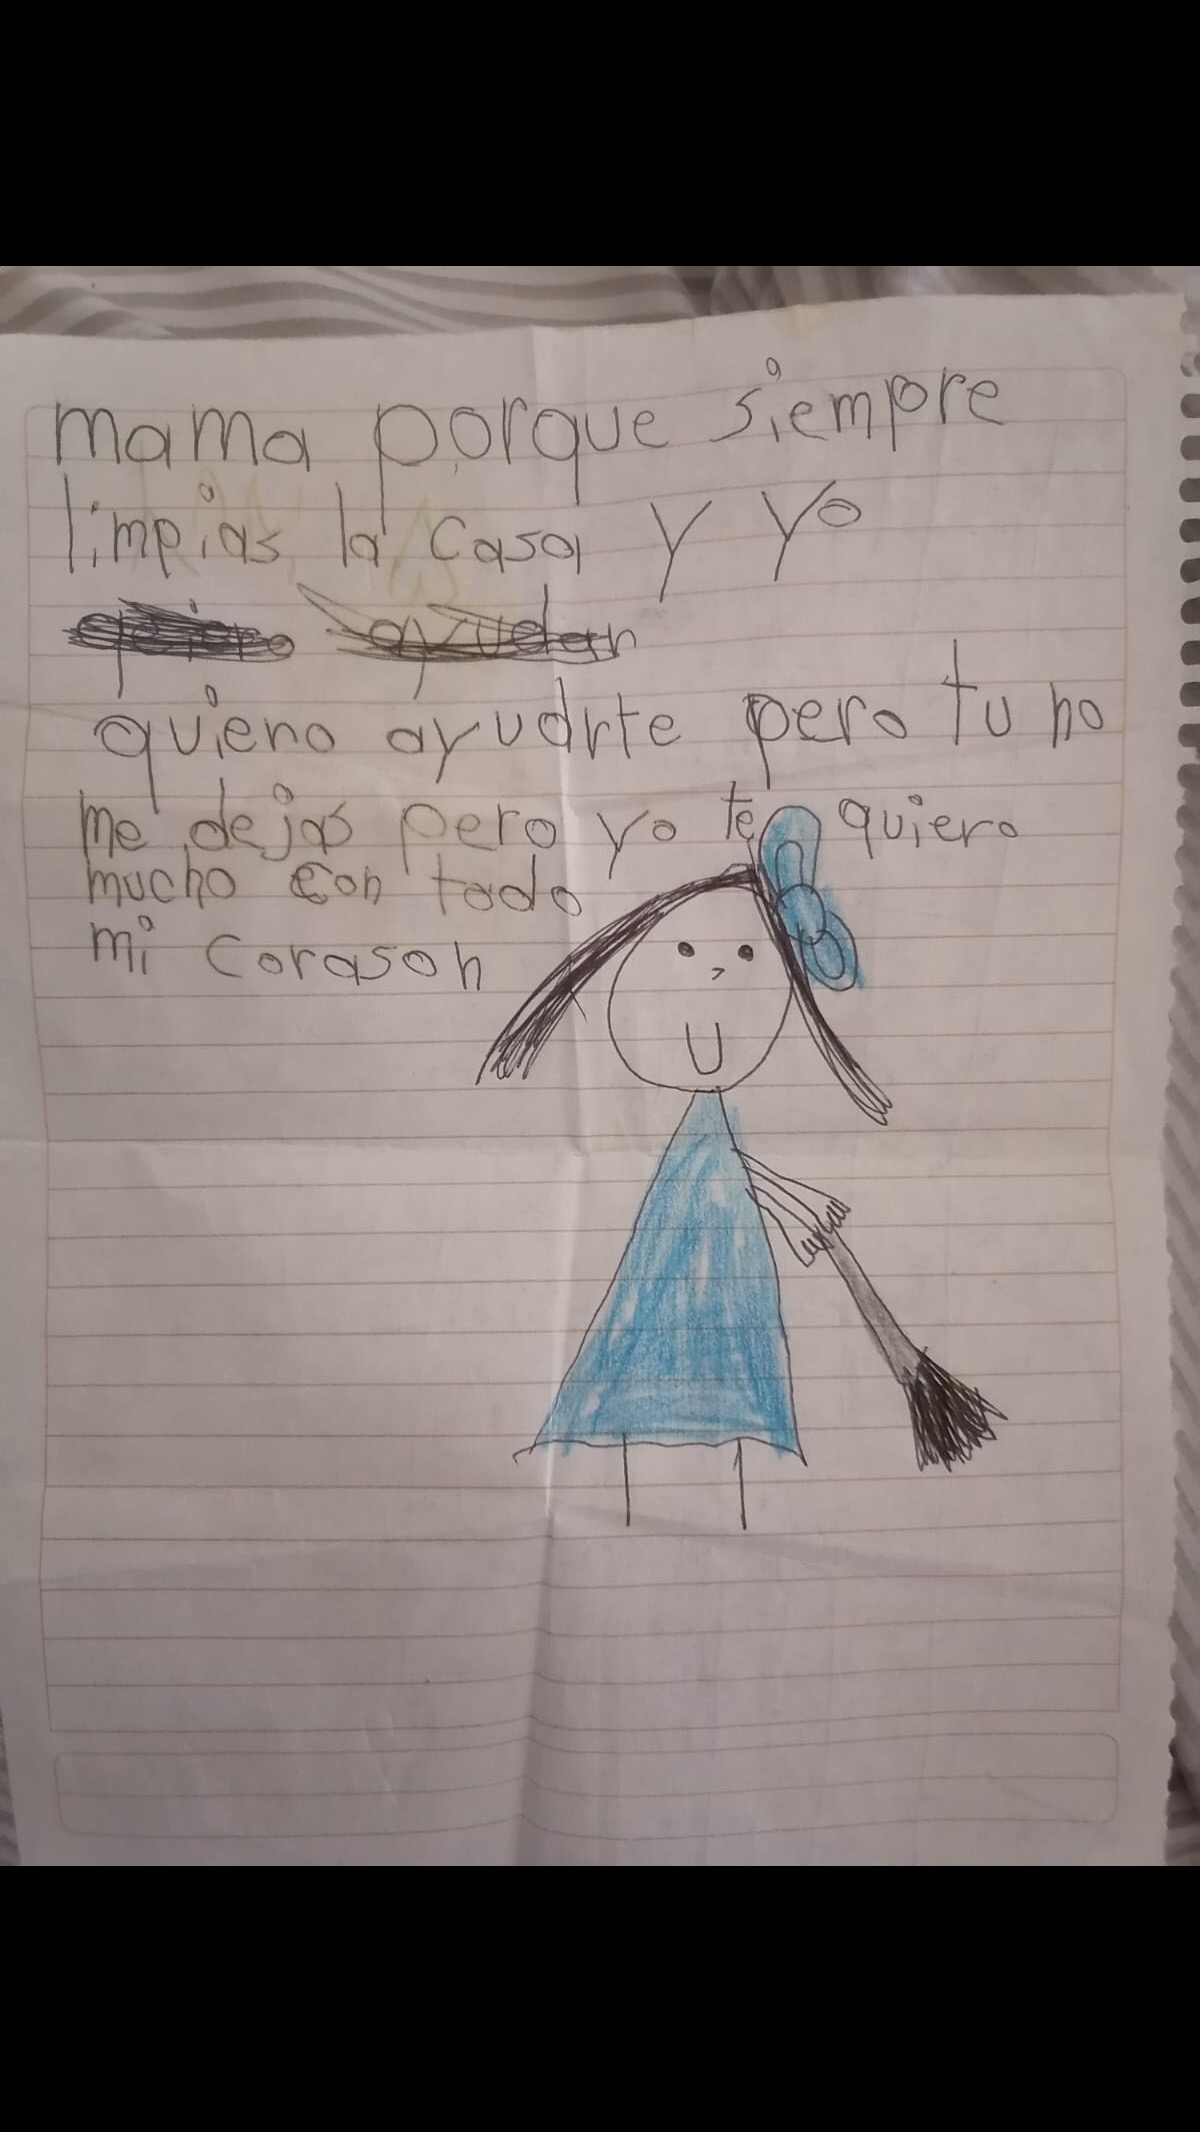 mama porque siempre
limpias la casa y yo
quiero ayudarte pero tu no
me dejas pero yo te quiero
mucho con todo
mi corason